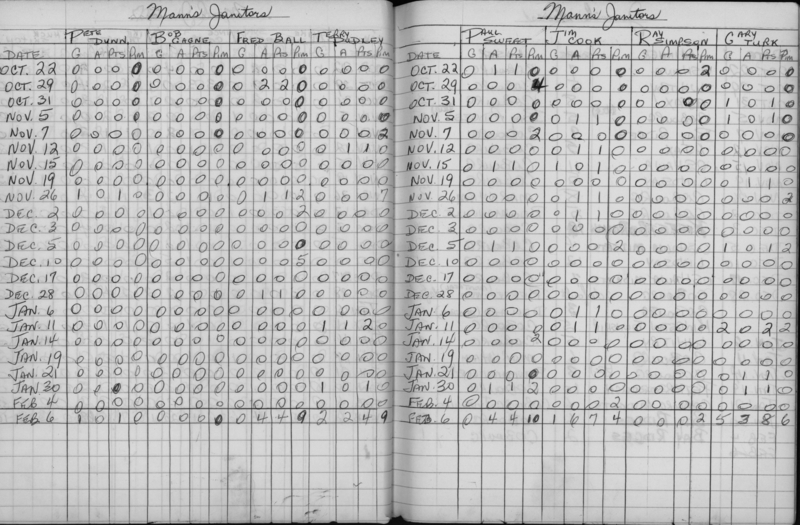 Mann's Janitors
PETE DUNN BOB GAGNE FRED BALL TERRY DUDLEY
DATE G A Pts Pim G A Pts Pim G A Pts Pim G A Pts Pim
OCT. 22 0 0 0 0 0 0 0 0 0 0 0 0 0 0 0 0
OCT. 29 0 0 0 0 0 0 0 0 0 2 2 0 0 0 0 0
OCT. 31 0 0 0 0 0 0 0 0 0 0 0 0 0 0 0 0
NOV. 5 0 0 0 0 0 0 0 0 0 0 0 0 0 0 0 0
NOV. 7 0 0 0 0 0 0 0 0 0 0 0 0 0 0 0 2
NOV. 12 0 0 0 0 0 0 0 0 0 0 0 0 0 1 1 0
NOV. 15 0 0 0 0 0 0 0 0 0 0 0 0 0 0 0 0
NOV. 19 0 0 0 0 0 0 0 0 0 0 0 0 0 0 0 0
NOV. 26 1 0 1 0 0 0 0 0 0 1 1 2 0 0 0 7
DEC. 2 0 0 0 0 0 0 0 0 0 0 0 2 0 0 0 0
DEC. 3 0 0 0 0 0 0 0 0 0 0 0 0 0 0 0 0
DEC. 5 0 0 0 0 0 0 0 0 0 0 0 0 0 0 0 0
DEC. 10 0 0 0 0 0 0 0 0 0 0 0 5 0 0 0 0
DEC. 17 0 0 0 0 0 0 0 0 0 0 0 0 0 0 0 0
DEC. 28 0 0 0 0 0 0 0 0 0 1 1 0 0 0 0 0
JAN. 6 0 0 0 0 0 0 0 0 0 0 0 0 0 0 0 0
JAN. 11 0 0 0 0 0 0 0 0 0 0 0 0 1 1 2 0
JAN. 14 0 0 0 0 0 0 0 0 0 0 0 0 0 0 0 0
JAN. 19 0 0 0 0 0 0 0 0 0 0 0 0 0 0 0 0
JAN. 21 0 0 0 0 0 0 0 0 0 0 0 0 0 0 0 0
JAN. 30 0 0 0 0 0 0 0 0 0 0 0 0 1 0 1 0
FEB. 4 0 0 0 0 0 0 0 0 0 0 0 0 0 0 0 0
FEB. 6 1 0 1 0 0 0 0 0 0 4 4 9 2 2 4 9
Mann's Janitors
PAUL SWEET JIM COOK RAY SIMPSON GARY TURK
DATE G A Pts Pim G A Pts Pim G A Pts Pim G A Pts Pim
OCT. 22 0 1 1 0 0 0 0 0 0 0 0 2 0 0 0 0
OCT. 29 0 0 0 4 0 0 0 0 0 0 0 0 0 0 0 0
OCT. 31 0 0 0 0 0 0 0 0 0 0 0 0 1 0 1 0
NOV. 5 0 0 0 0 0 1 1 0 0 0 0 0 1 0 1 0
NOV. 7 0 0 0 2 0 0 0 0 0 0 0 0 0 0 0 0
NOV. 12 0 0 0 0 0 1 1 0 0 0 0 0 0 0 0 0
NOV. 15 0 1 1 0 1 0 1 0 0 0 0 0 0 0 0 0
NOV. 19 0 0 0 0 0 0 0 0 0 0 0 0 0 1 1 0
NOV. 26 0 0 0 0 0 1 1 0 0 0 0 0 0 0 0 2
DEC. 2 0 0 0 0 0 1 1 0 0 0 0 0 0 0 0 0
DEC. 3 0 0 0 0 0 0 0 0 0 0 0 0 0 0 0 0
DEC. 5 0 1 1 0 0 0 0 2 0 0 0 0 1 0 1 2
DEC. 10 0 0 0 0 0 0 0 0 0 0 0 0 0 0 0 0
DEC. 17 0 0 0 0 0 0 0 0 0 0 0 0 0 0 0 0
DEC. 28 0 0 0 0 0 0 0 0 0 0 0 0 0 0 0 0
JAN. 6 0 0 0 0 0 1 1 0 0 0 0 0 0 0 0 0
JAN. 11 0 0 0 0 0 1 1 0 0 0 0 0 2 0 2 2
JAN. 14 0 0 0 2 0 0 0 0 0 0 0 0 0 0 0 0
JAN. 19 0 0 0 0 0 0 0 0 0 0 0 0 0 0 0 0
JAN. 21 0 0 0 0 0 0 0 0 0 0 0 0 0 1 1 0
JAN. 30 0 1 1 2 0 0 0 0 0 0 0 0 0 1 1 0
FEB. 4 0 0 0 0 0 0 0 2 0 0 0 0 0 0 0 0
FEB. 6 0 4 4 10 1 6 7 4 0 0 0 2 5 3 8 6